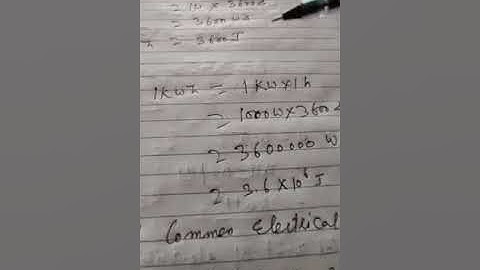 = 1W × 3600s
= 3600 Ws
= 3600 J
1kwh = 1 kw×1h
= 1000W×3600 s
= 3600000 W
= 3.6×10⁶ J
Common Electrical